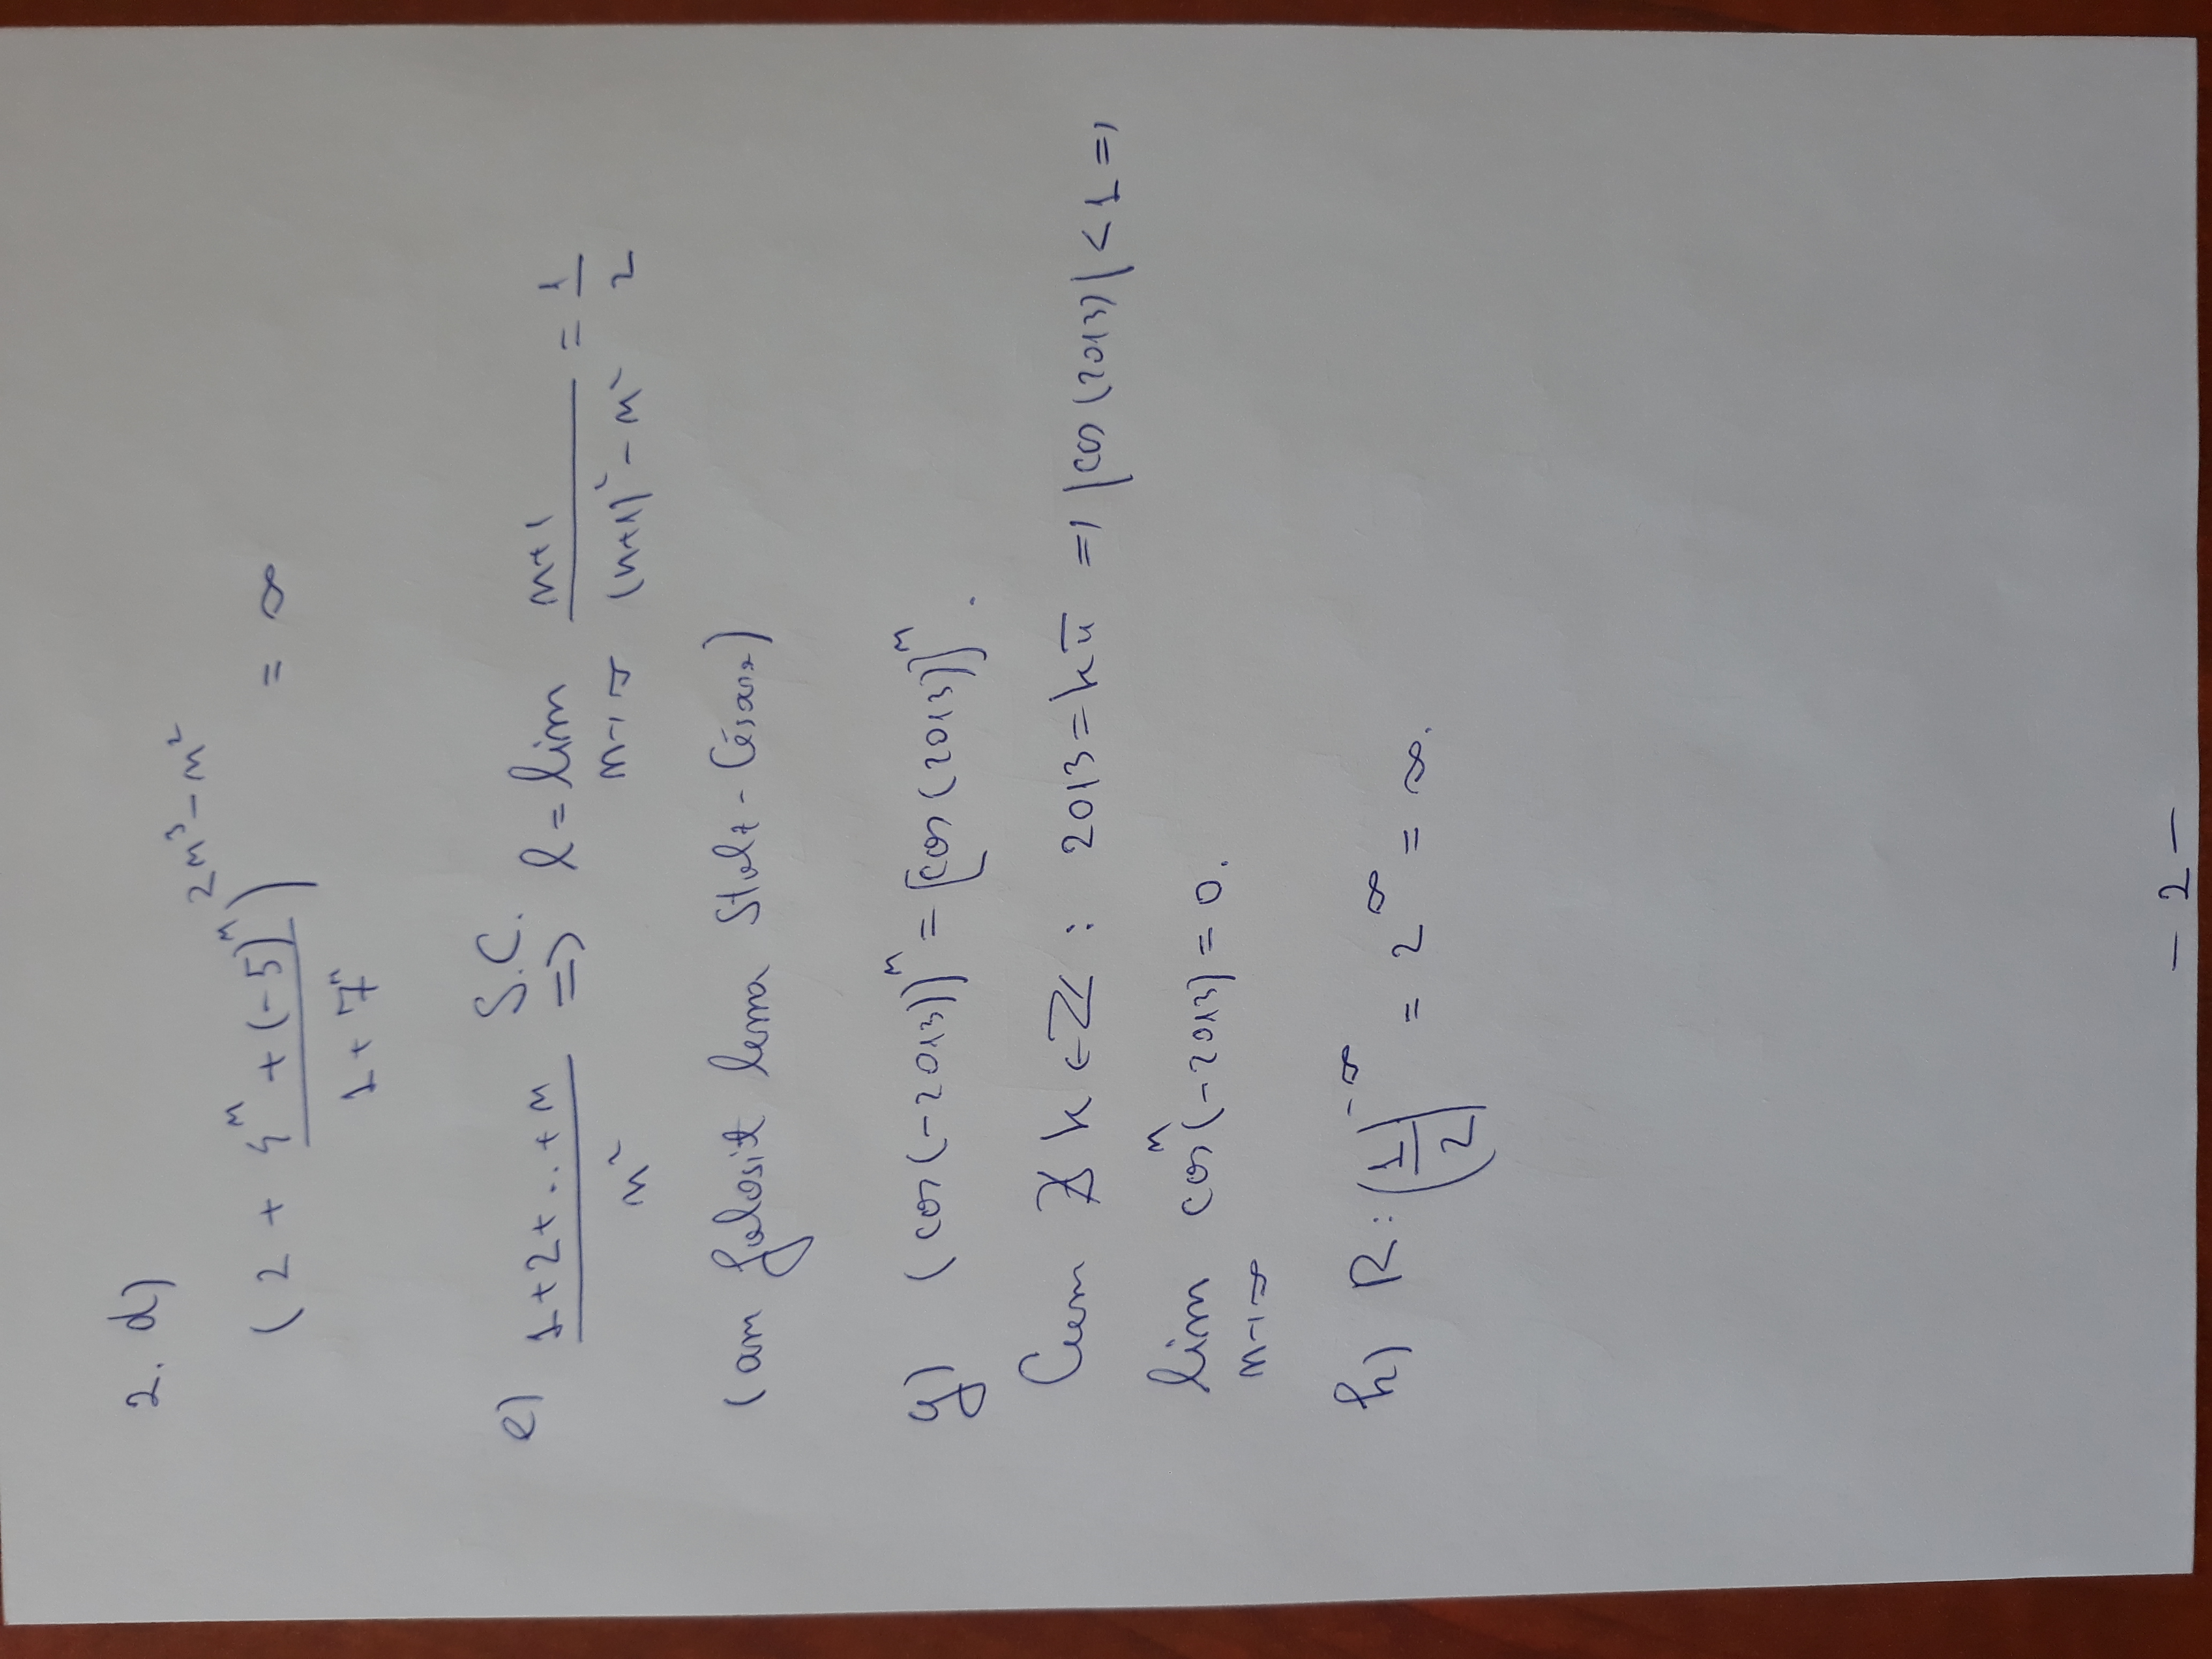 2. d)
(2 + (4^n + (-5)^n)/(1 + 7^n))^(2n³ - n²) = ∞
e) (1+2+..+n)/n² S.C. => l = lim n→∞ (n+1)/((n+1)² - n²) = 1/2
(am folosit lema Stolz-Césaro)
g) (cos(-2013))^n = [cos(2013)]^n.
Cum ∄ k ∈ ℤ : 2013 = kπ => |cos(2013)| < 1 =>
lim n→∞ cos^n(-2013) = 0.
h) R: (1/2)^-∞ = 2^∞ = ∞.
- 2 -